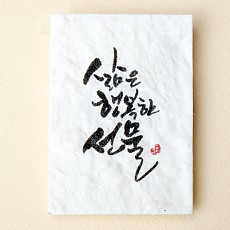 삶은
행복한
선물